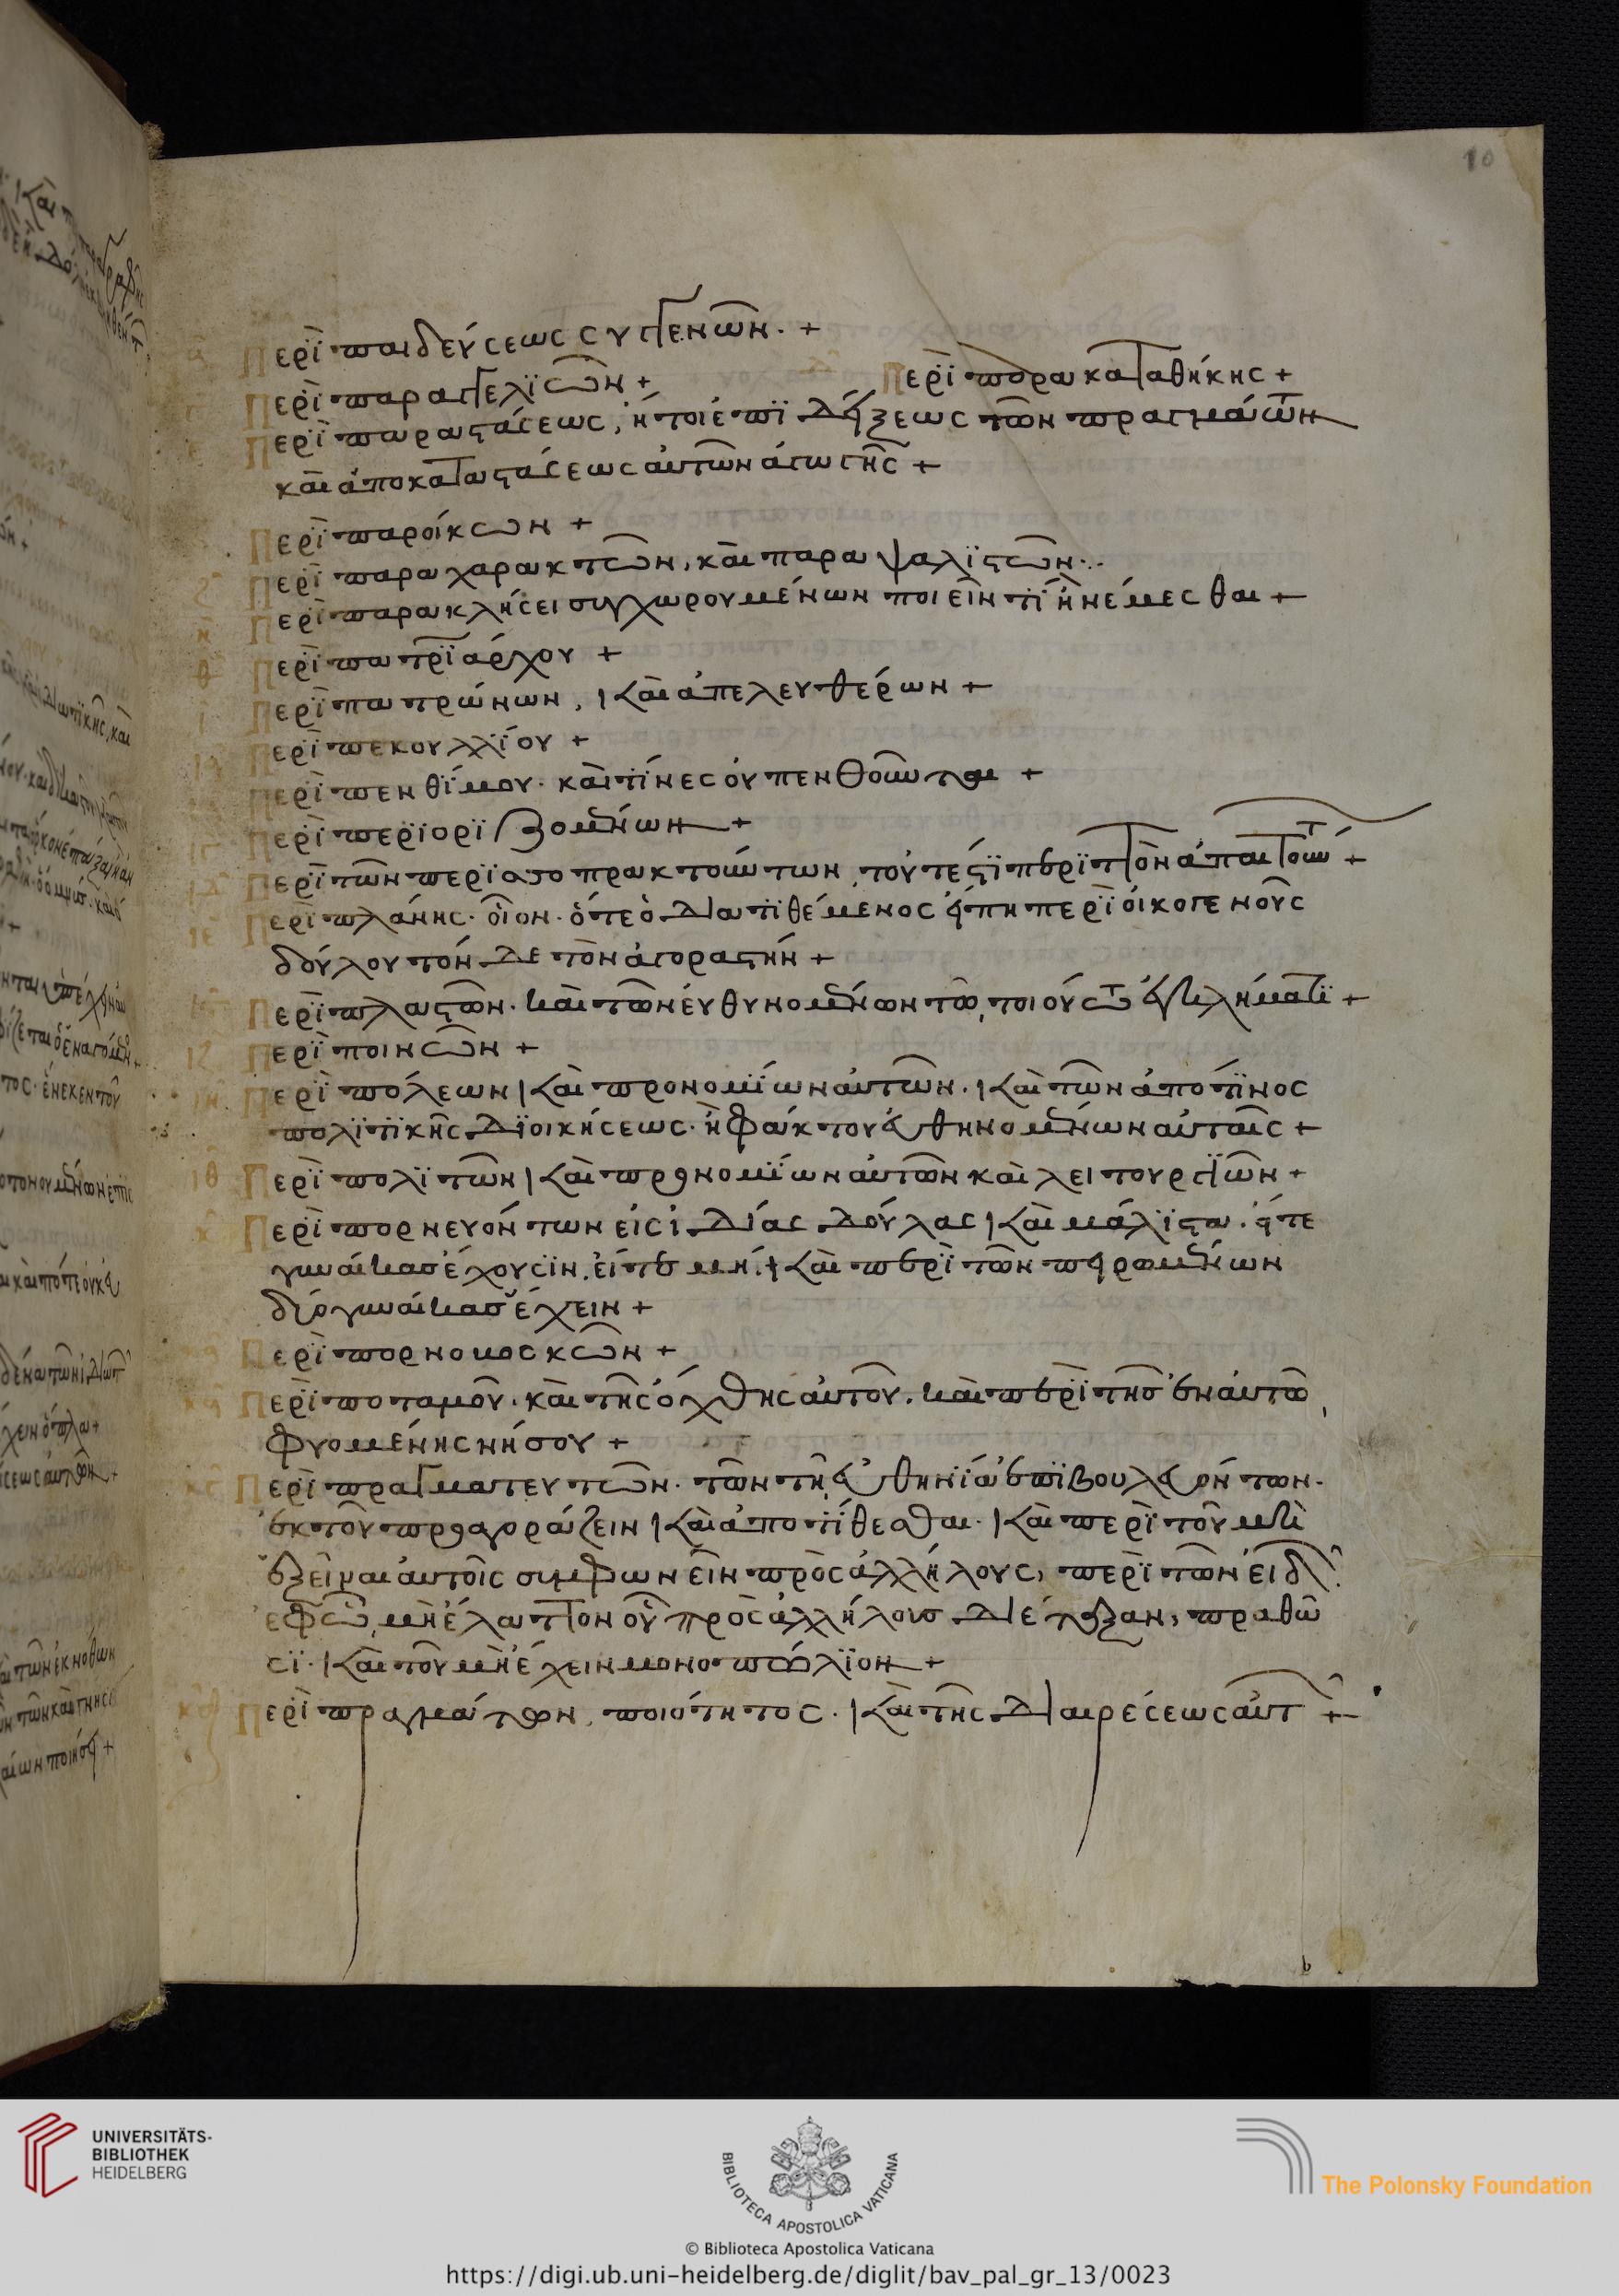 10
Περὶ παιδεύσεως συγγενῶν. +
Περὶ παραγγελιῶν + Περὶ παρακαταθήκης +
Περὶ παραστάσεως, ἤτοι ἐπιδείξεως τῶν πραγμάτων
καὶ ἀποκαταστάσεως αὐτῶν ἀγωγῆς +
Περὶ παροίκων +
Περὶ παραχαρακτῶν, καὶ παραψαλιστῶν.
Περὶ παρακλήσει συγχωρουμένων ποιεῖν τι ἢ νέμεσθαι +
Περὶ πατριάρχου +
Περὶ πατρώνων, καὶ ἀπελευθέρων +
Περὶ πεκουλλίου +
Περὶ πενθίμου. καὶ τίνες οὐ πενθοῦνται +
Περὶ περιοριζομένων +
Περὶ τῶν περὶ πρακτούντων, τουτέστι περιττὸν ἀπαιτούντων +
Περὶ πλάνης. οἷον. ὅτε ὁ διατιθέμενος εἴπη περὶ οἰκογενοῦς
δούλου τόνδε τὸν ἀγοραστήν +
Περὶ πλαστῶν. καὶ τῶν εὐθυνομένων τῶ, τοιούτω ἐγκλήματι +
Περὶ ποινῶν +
Περὶ πόλεων καὶ προνομίων αὐτῶν. καὶ τῶν ἀπό τινος
πολιτικῆς διοικήσεως. ἢ φάκτου εὐθηνομένων αὐταῖς +
Περὶ πολιτῶν καὶ προνομίων αὐτῶν καὶ λειτουργιῶν +
Περὶ πορνευόντων εἰς ἰδίας δούλας καὶ μάλιστα. εἴτε
γυναίκας ἔχουσιν, εἴτε μή. καὶ περὶ τῶν πειρωμένων
δύο γυναίκας ἔχειν +
Περὶ πορνοβοσκῶν +
Περὶ ποταμοῦ. καὶ τῆς ὄχθης αὐτοῦ. καὶ περὶ τῆς ἐν αὐτῶ
φυομένης νήσου +
Περὶ πραγματευτῶν. τῶν τῆ εὐθηνία ἐπιβουλευόντων.
ἐκ τοῦ προαγοράζειν καὶ ἀποτίθεσθαι. καὶ περὶ τοῦ μὴ
ἐξεῖναι αὐτοῖς συμφωνεῖν πρὸς ἀλλήλους, περὶ τῶν εἰδῶν
ἐφ' ὧ, μὴ ἔλαττον οὗ πρὸς ἀλλήλους διέταξαν, πραθῶ
σι. καὶ τοῦ μὴ ἔχειν μονοπώλιον +
Περὶ πραγμάτων, ποιότητος. καὶ τῆς διαιρέσεως αὐτῶν +
UNIVERSITÄTS-
BIBLIOTHEK
HEIDELBERG
BIBLIOTECA APOSTOLICA VATICANA
The Polonsky Foundation
© Biblioteca Apostolica Vaticana
https://digi.ub.uni-heidelberg.de/diglit/bav_pal_gr_13/0023